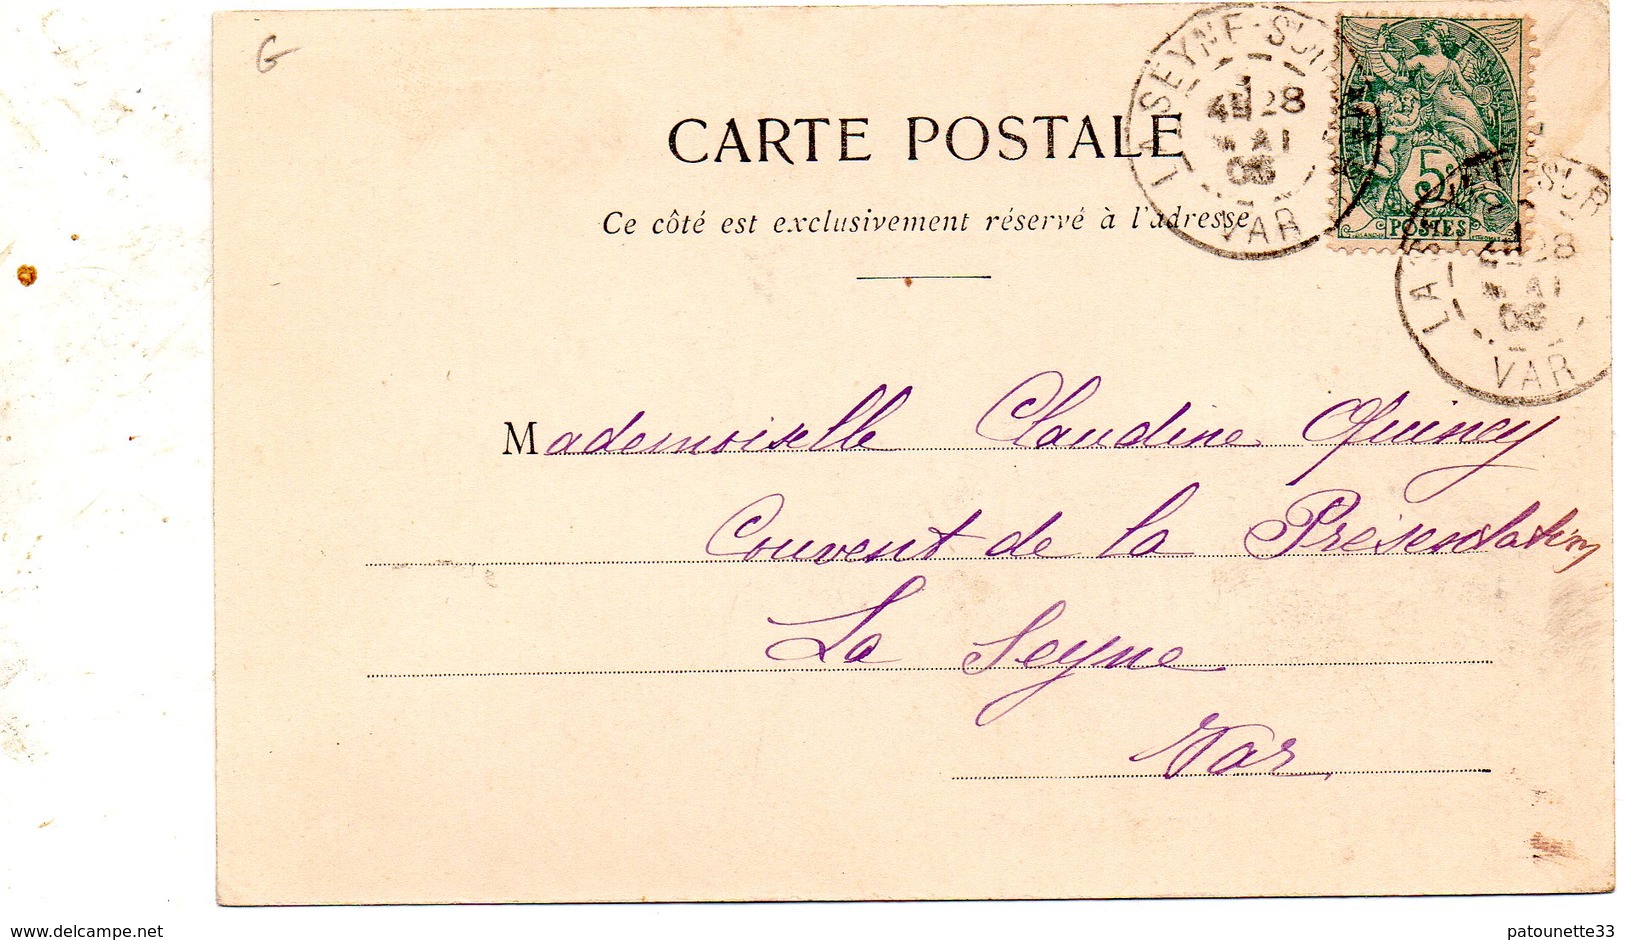 G
CARTE POSTALE
Ce côté est exclusivement réservé à l'adresse
LA SEYNE-SUR
28
MAI
VAR
RÉPUBLIQUE FRANÇAISE
5c
POSTES
LA SEYNE-SUR
28
MAI
VAR
Mademoiselle Claudine Quincy
Couvent de la Présentation
La Seyne
Var
www.delcampe.net
patounette33